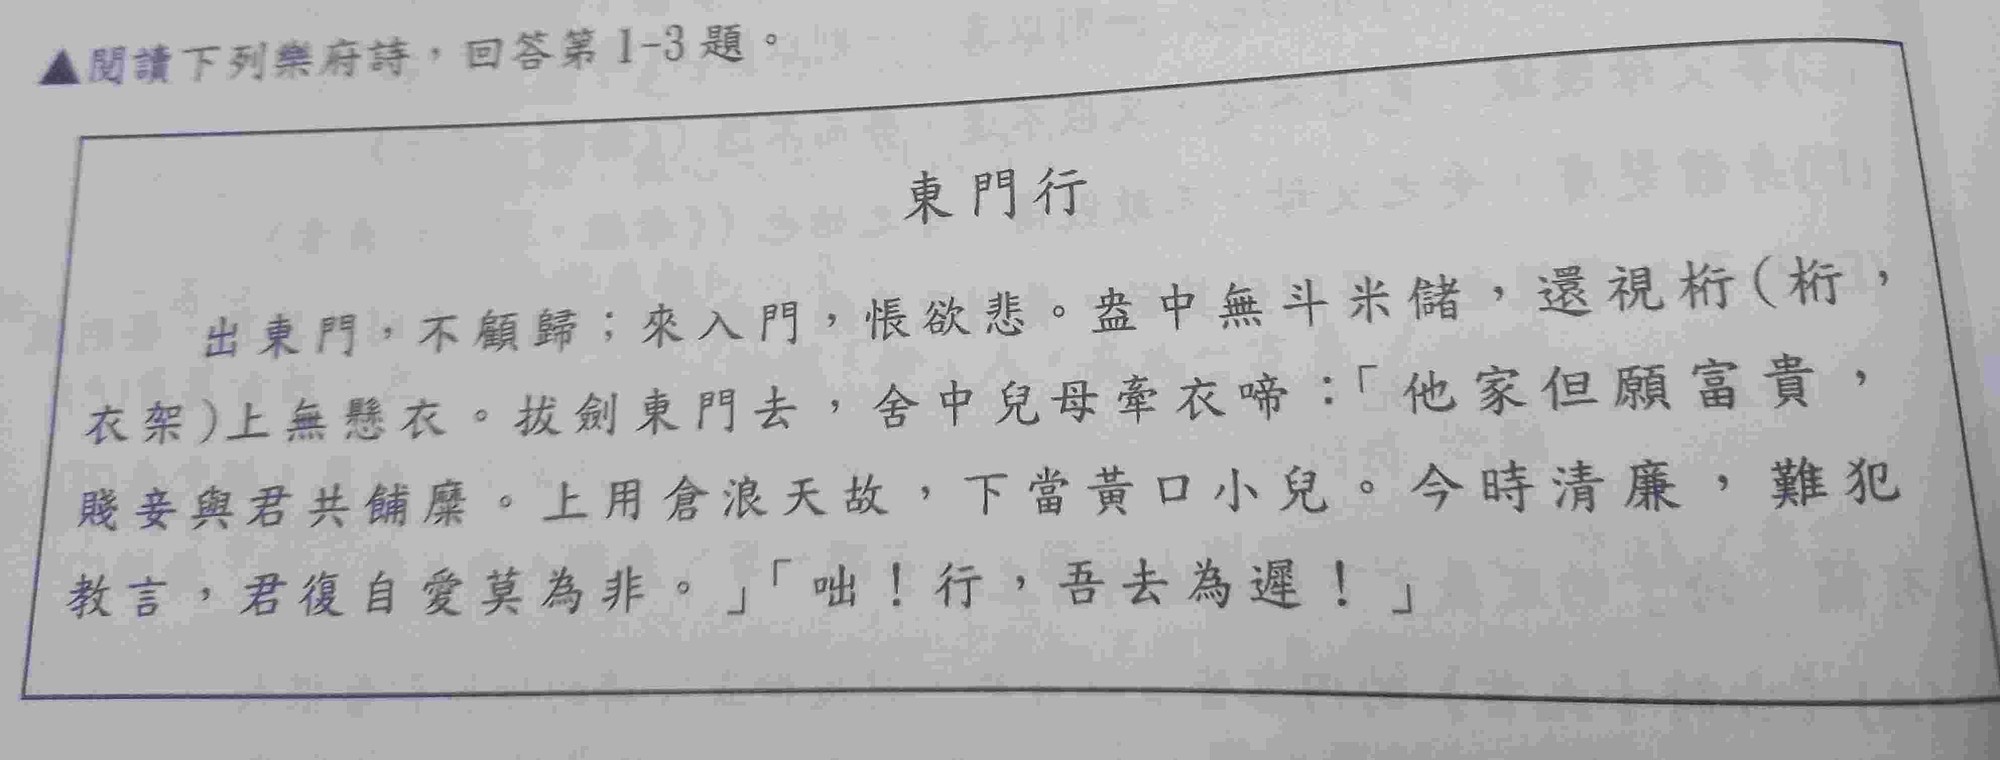 ▲閱讀下列樂府詩，回答第1-3題。
東門行
出東門，不顧歸；來入門，悵欲悲。盎中無斗米儲，還視桁(桁，
衣架)上無懸衣。拔劍東門去，舍中兒母牽衣啼：「他家但願富貴，
賤妾與君共餔糜。上用倉浪天故，下當黃口小兒。今時清廉，難犯
教言，君復自愛莫為非。」「咄！行，吾去為遲！」